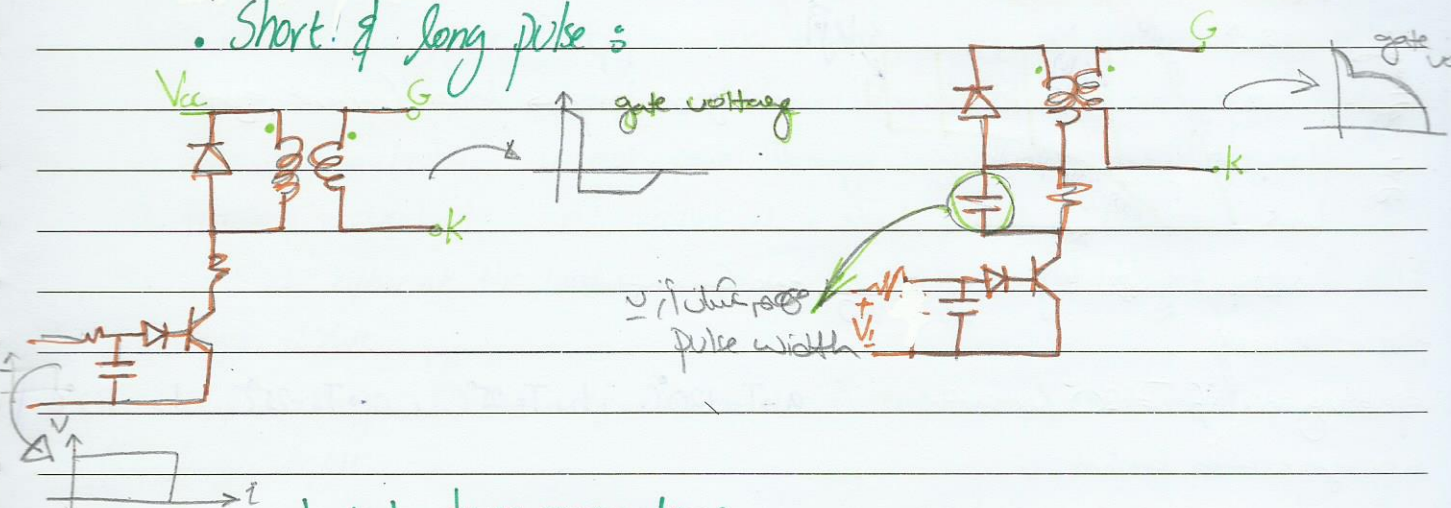 • Short & long pulse :
Vcc
G
K
gate voltage
V
t
G
K
gate
+
Vi
pulse width